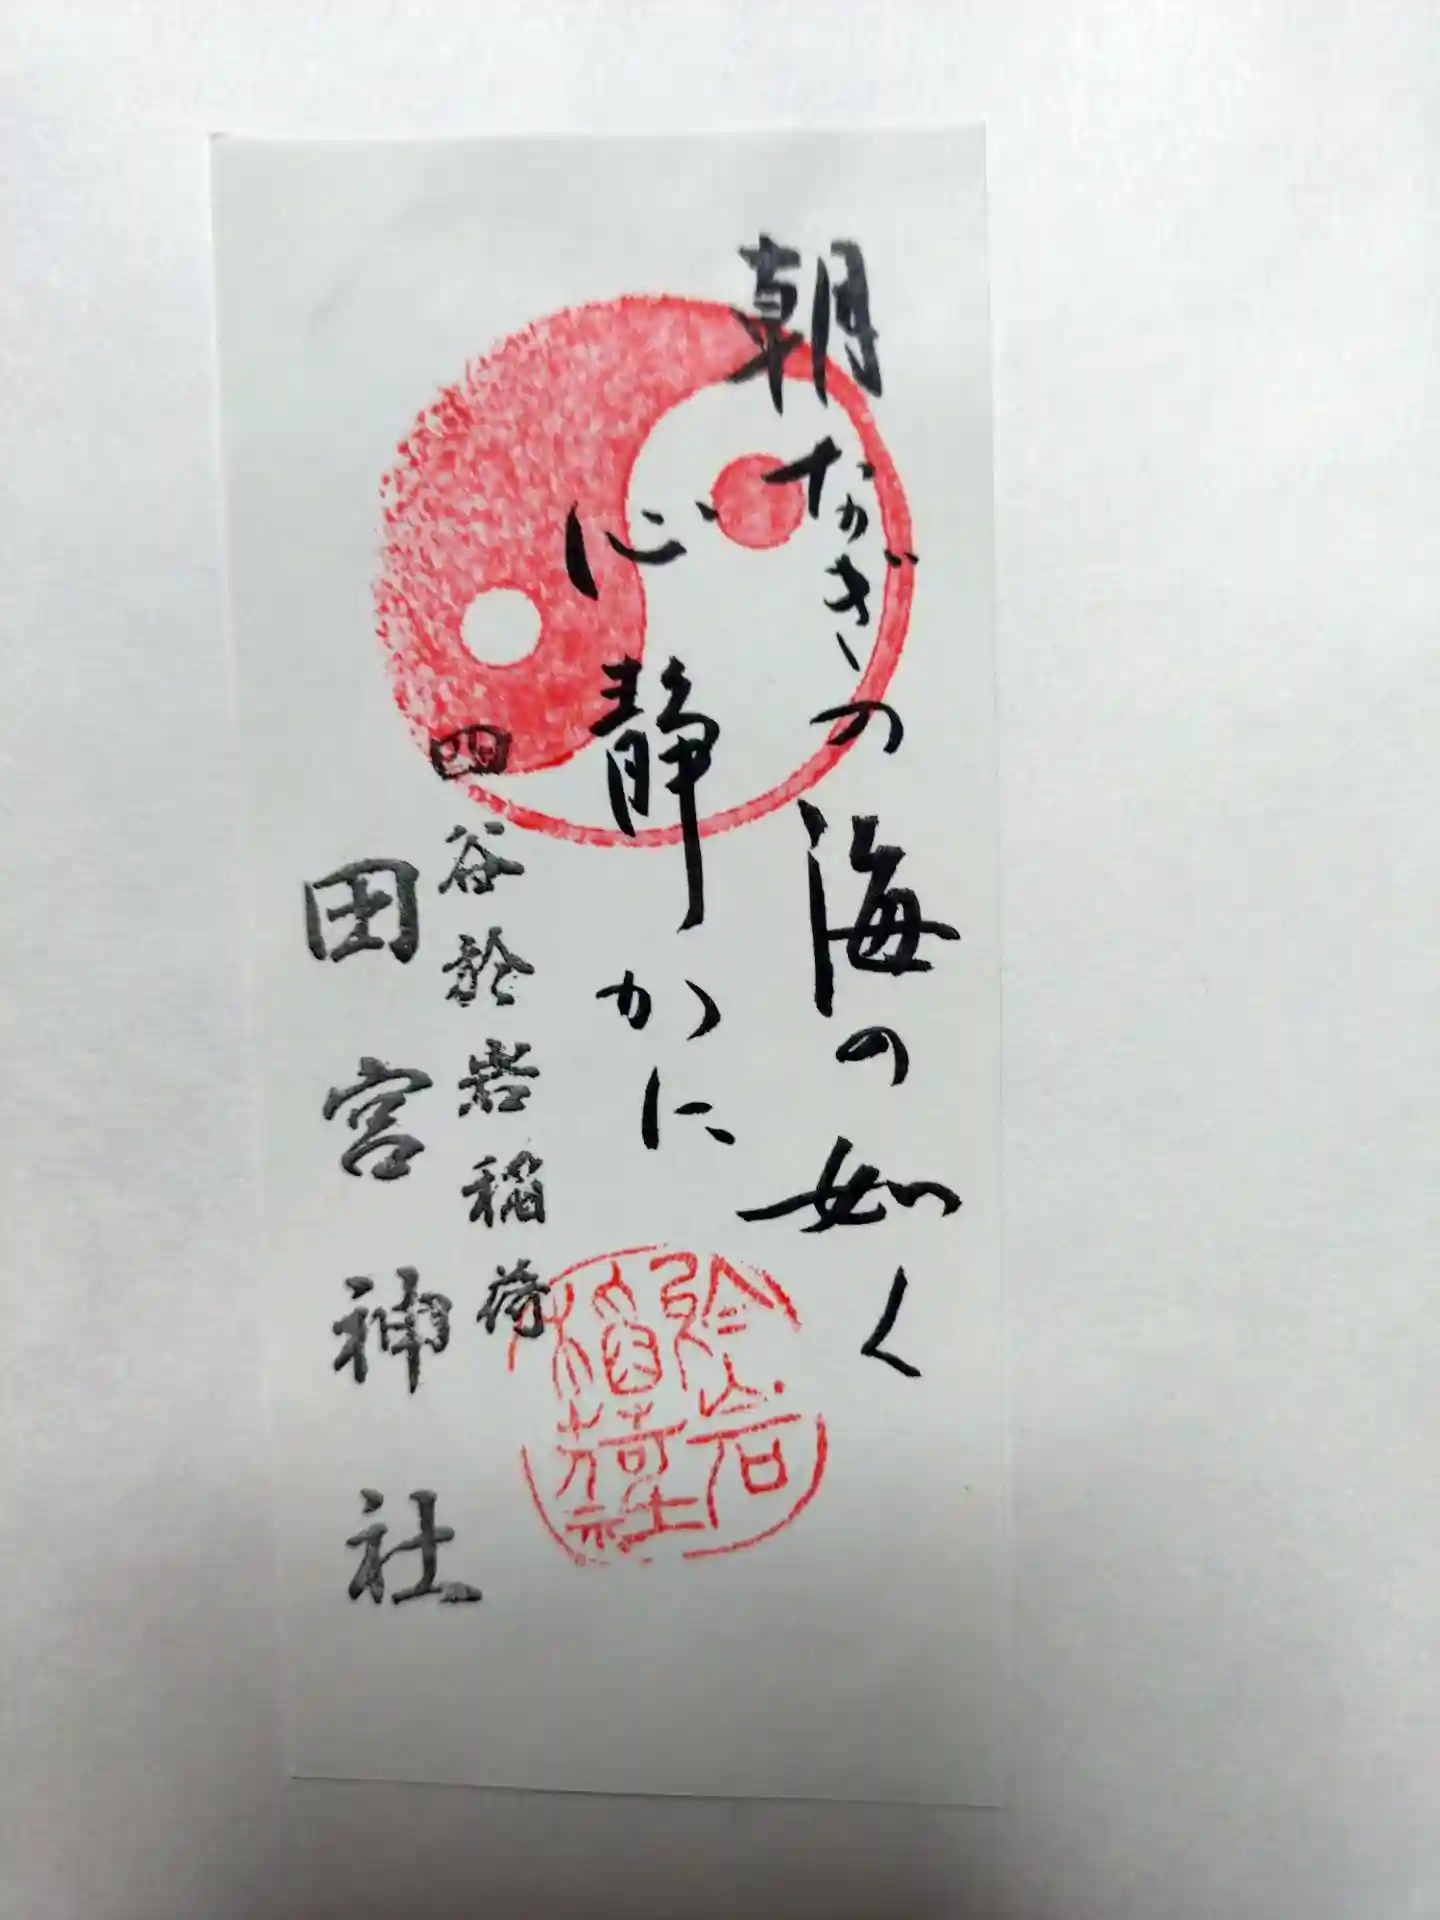 朝なぎの海の如く
心静かに
四谷於岩稲荷
田宮神社
於岩
稲荷